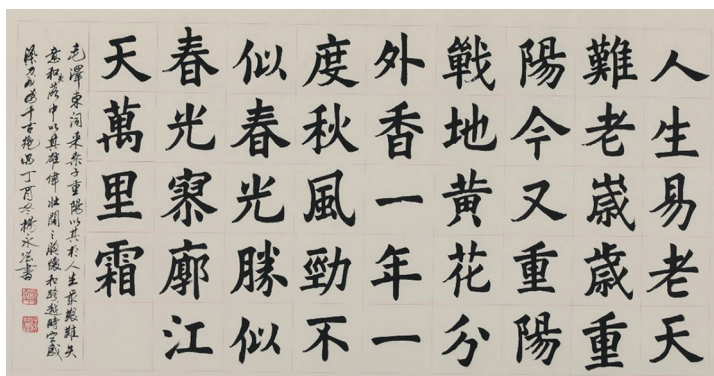 人生易老天
難老嵗歲重
陽今又重陽
戰地黃花分
外香一年一
度秋風勁不
似春光勝似
春光寥廓江
天萬里霜
毛澤東詞采桑子重陽以其於人生最艱難失
意和失落中以其雄偉壯闊之胸懷和跨越時空感
染力成千古絕唱丁酉冬楊永書